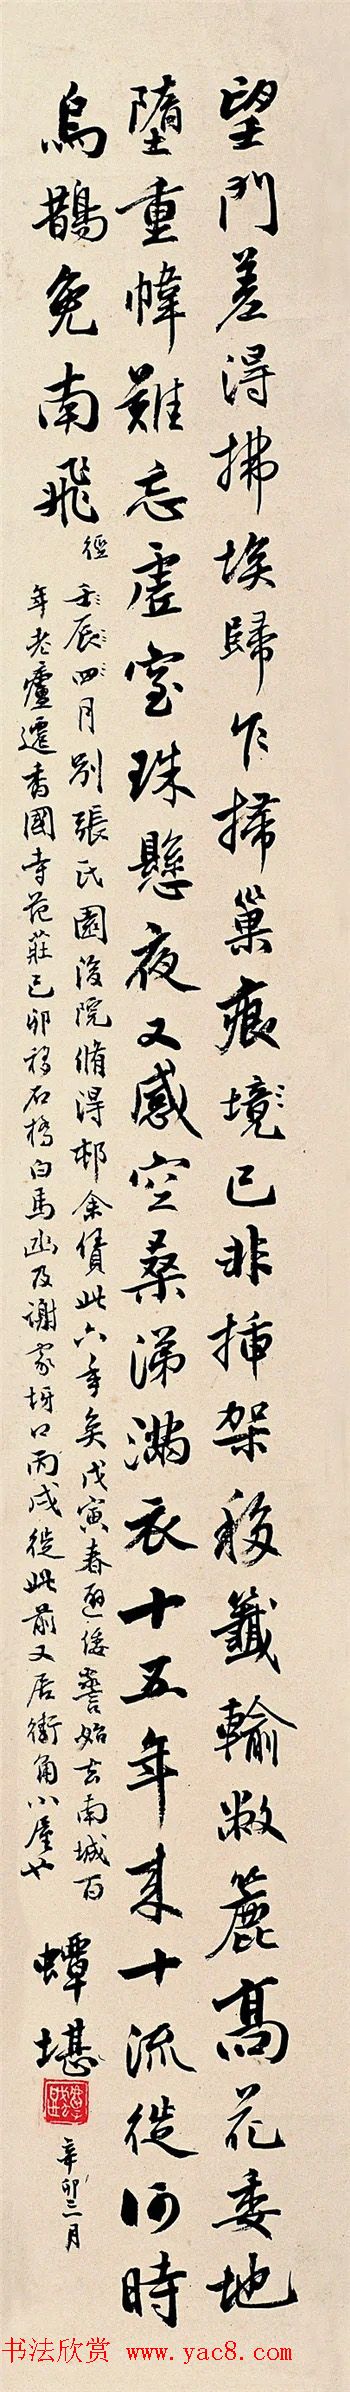 望門差得拂埃歸乍掃巢痕境已非插架移籤輸敝簏高花委地
墮重幃難忘虛室珠懸夜又感空桑涕滿衣十五年來十流徙何時
烏鵲免南飛
徑
壬辰四月別張氏園後院脩得邨余賃此六年矣戊寅春避倭警始去南城百
年老廬遷香國寺范莊己卯移石橋白馬凼及謝家坍口丙戌徙此前又居街角小屋也
蟫堪
辛卯二月
书法欣赏 www.yac8.com